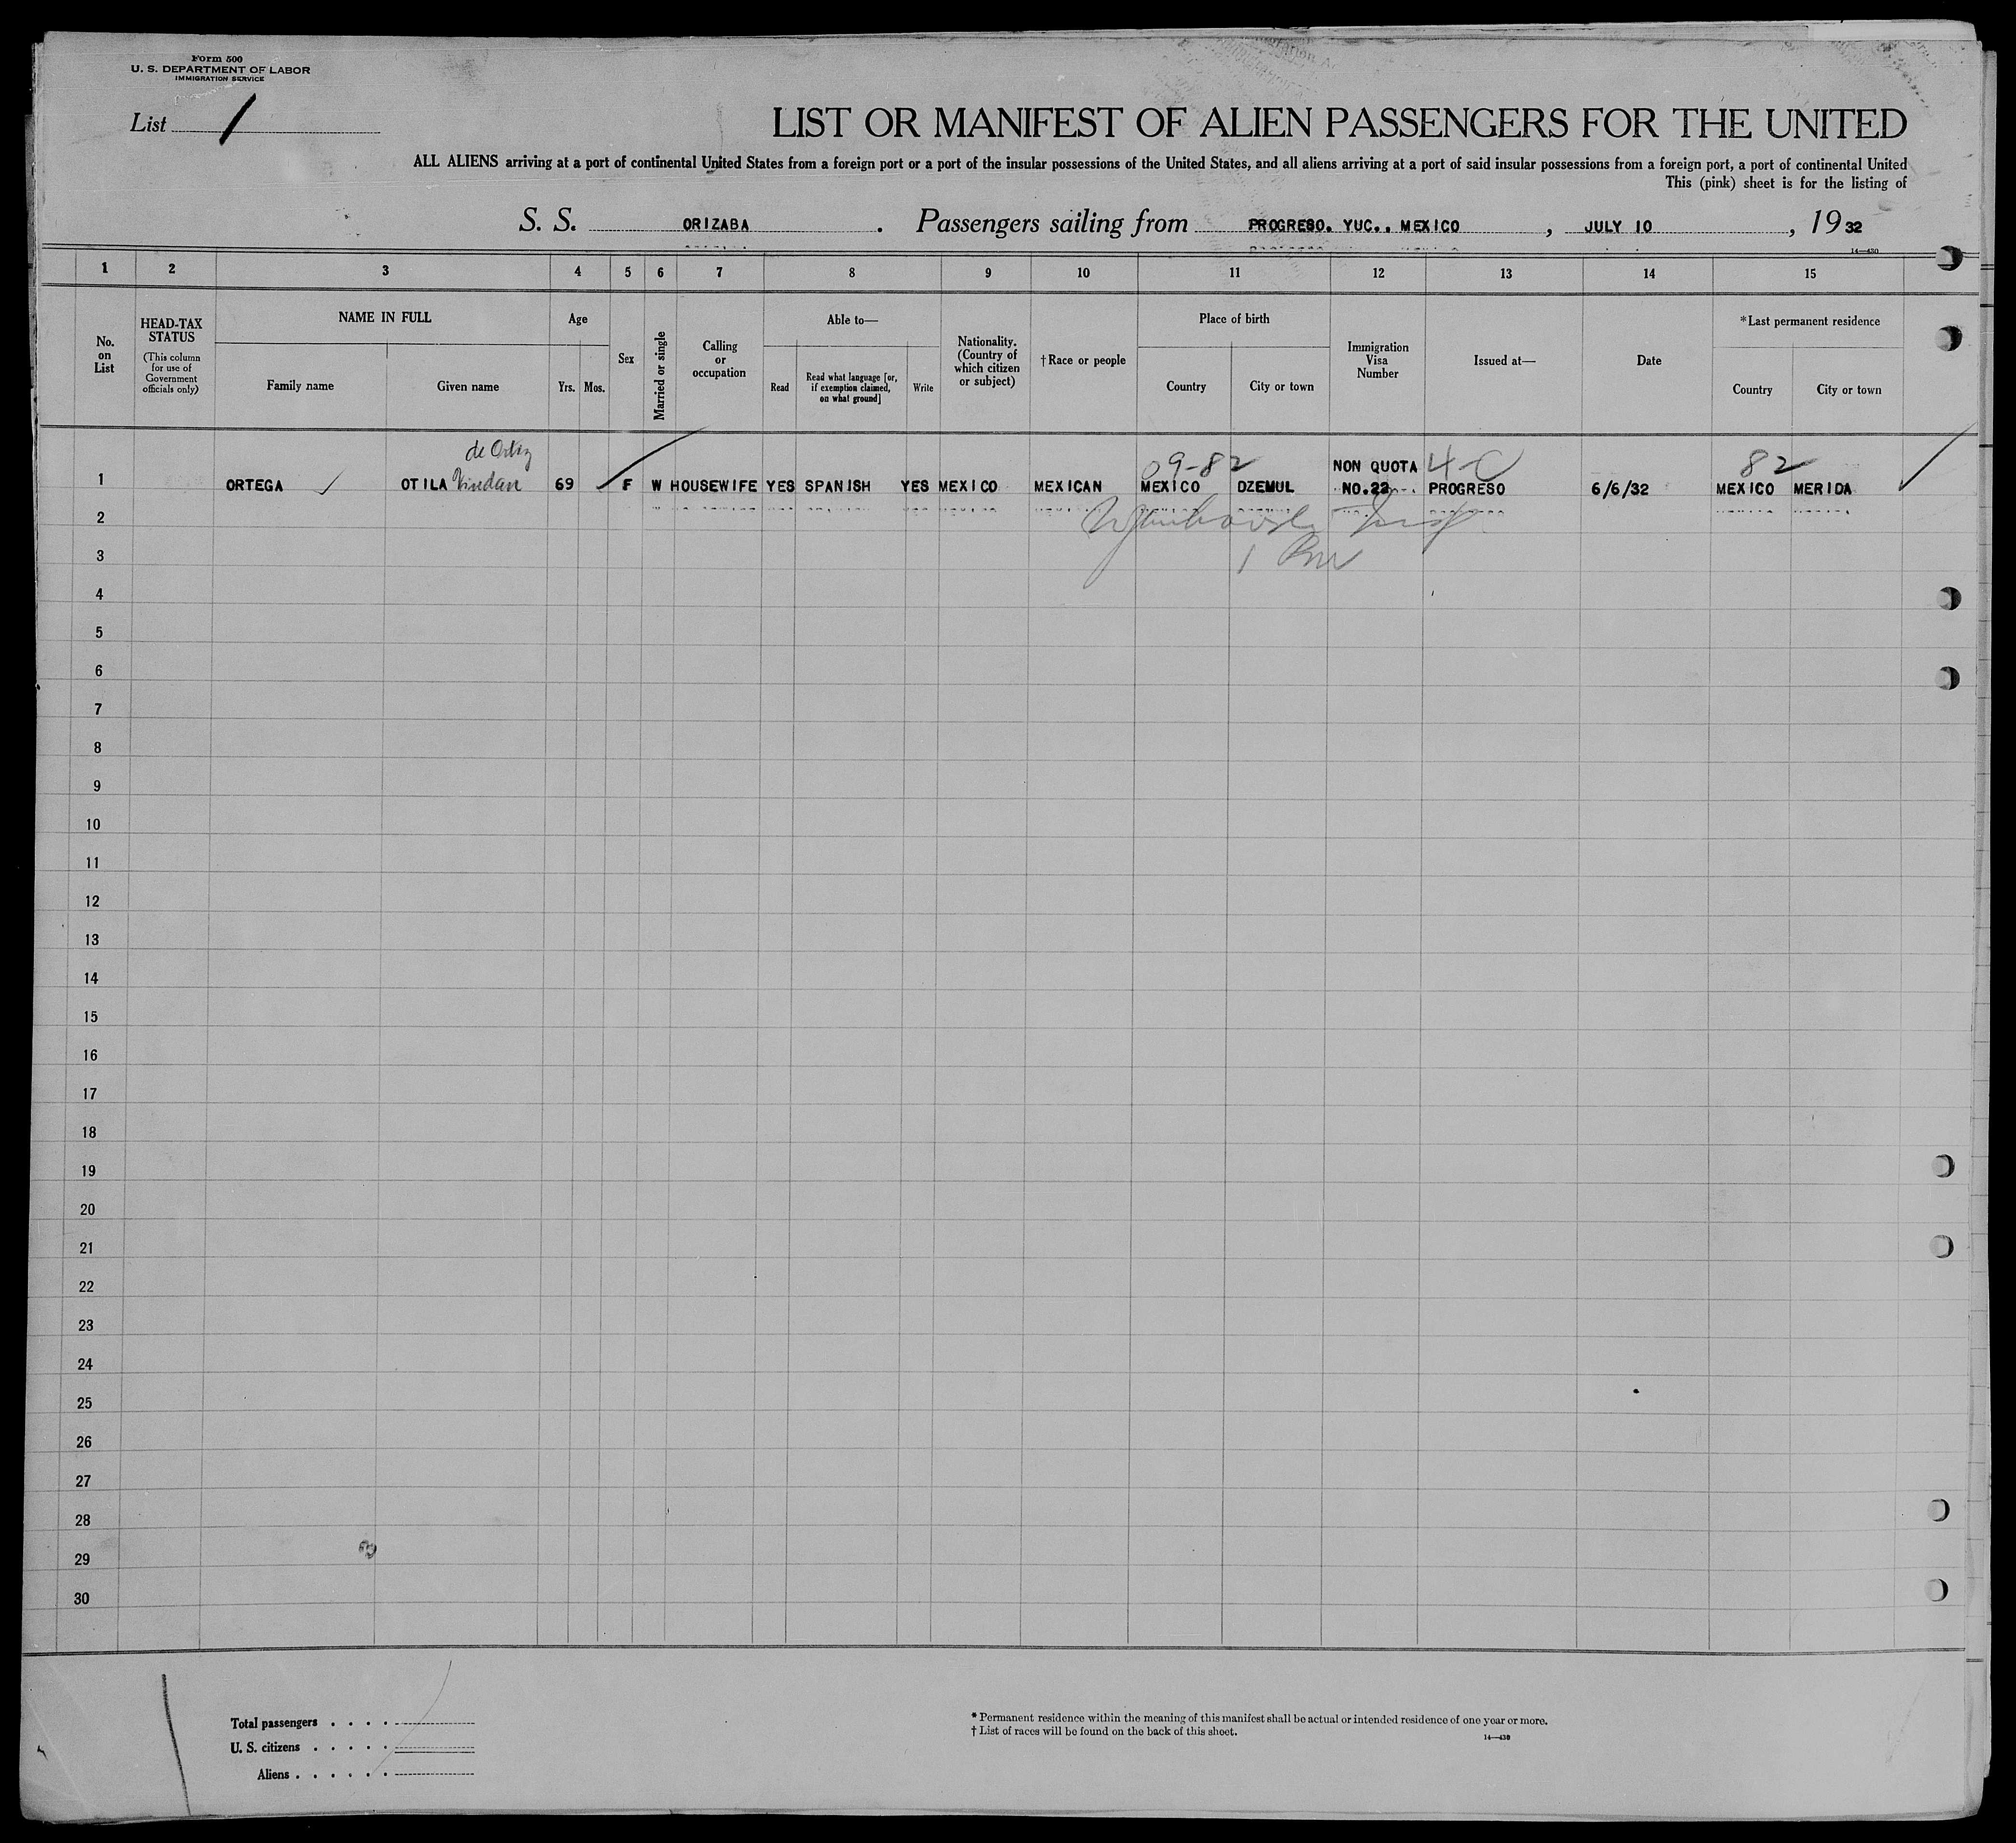 Form 500
U. S. DEPARTMENT OF LABOR
IMMIGRATION SERVICE
List 1
LIST OR MANIFEST OF ALIEN PASSENGERS FOR THE UNITED
ALL ALIENS arriving at a port of continental United States from a foreign port or a port of the insular possessions of the United States, and all aliens arriving at a port of said insular possessions from a foreign port, a port of continental United
This (pink) sheet is for the listing of
S. S. ORIZABA. Passengers sailing from PROGRESO. YUC., MEXICO, JULY 10, 1932
14—430
1 2 3 4 5 6 7 8 9 10 11 12 13 14 15
No. on List
HEAD-TAX STATUS
(This column for use of Government officials only)
NAME IN FULL
Family name
Given name
Age
Yrs. Mos.
Sex
Married or single
Calling or occupation
Able to—
Read
Read what language [or, if exemption claimed, on what ground]
Write
Nationality. (Country of which citizen or subject)
†Race or people
Place of birth
Country
City or town
Immigration Visa Number
Issued at—
Date
*Last permanent residence
Country
City or town
de Ortiz
09-82 NON QUOTA 4-C 82
1 ORTEGA OTILA 69 F W HOUSEWIFE YES SPANISH YES MEXICO MEXICAN MEXICO DZEMUL NO.22 PROGRESO 6/6/32 MEXICO MERIDA
2
3
4
5
6
7
8
9
10
11
12
13
14
15
16
17
18
19
20
21
22
23
24
25
26
27
28
29
30
Total passengers
U. S. citizens
Aliens
* Permanent residence within the meaning of this manifest shall be actual or intended residence of one year or more.
† List of races will be found on the back of this sheet.
14—430